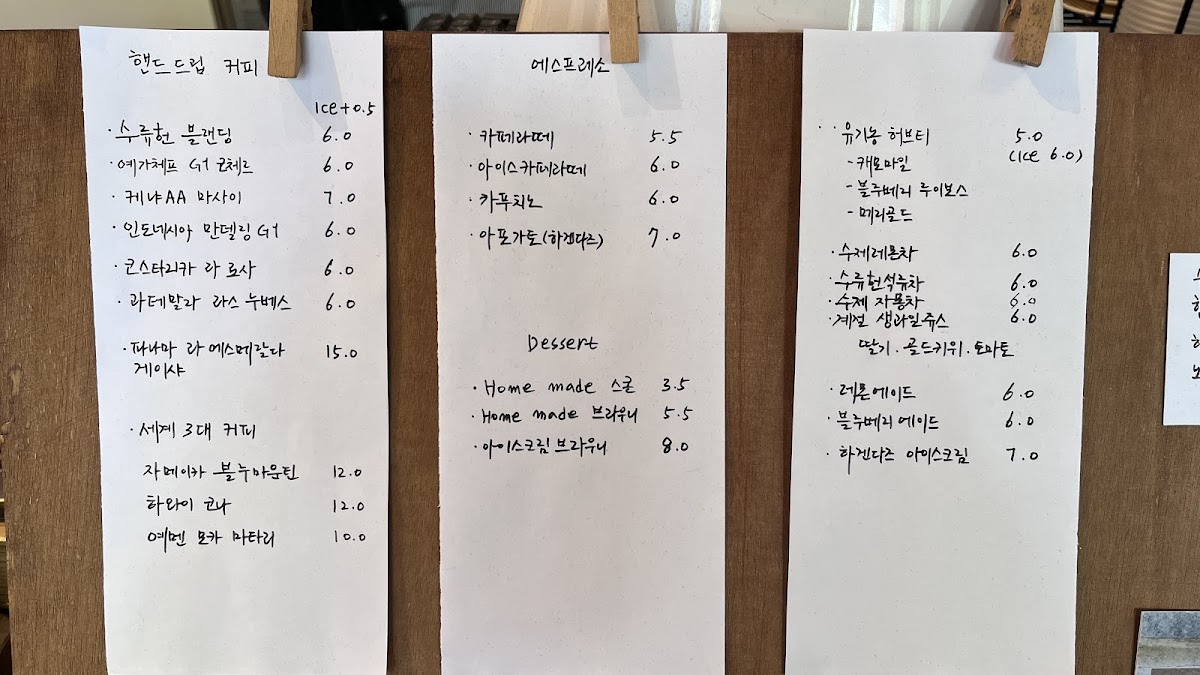 핸드드립 커피
Ice+0.5
· 수류헌 블랜딩 6.0
· 예가체프 G1 코체르 6.0
· 케냐AA 마사이 7.0
· 인도네시아 만델링 G1 6.0
· 코스타리카 라 로사 6.0
· 과테말라 라스 누베스 6.0
· 파나마 라 에스메랄다 15.0
게이샤
· 세계 3대 커피
자메이카 블루마운틴 12.0
하와이 코나 12.0
예멘 모카 마타리 10.0
에스프레소
· 카페라떼 5.5
· 아이스카페라떼 6.0
· 카푸치노 6.0
· 아포가토(하겐다즈) 7.0
Dessert
· Home made 스콘 3.5
· Home made 브라우니 5.5
· 아이스크림 브라우니 8.0
· 유기농 허브티 5.0
(Ice 6.0)
- 캐모마일
- 블루베리 루이보스
- 메리골드
· 수제레몬차 6.0
· 수류헌석류차 6.0
· 수제 자몽차 6.0
· 계절 생과일쥬스 6.0
딸기 . 골드키위 . 토마토
· 레몬에이드 6.0
· 블루베리에이드 6.0
· 하겐다즈 아이스크림 7.0